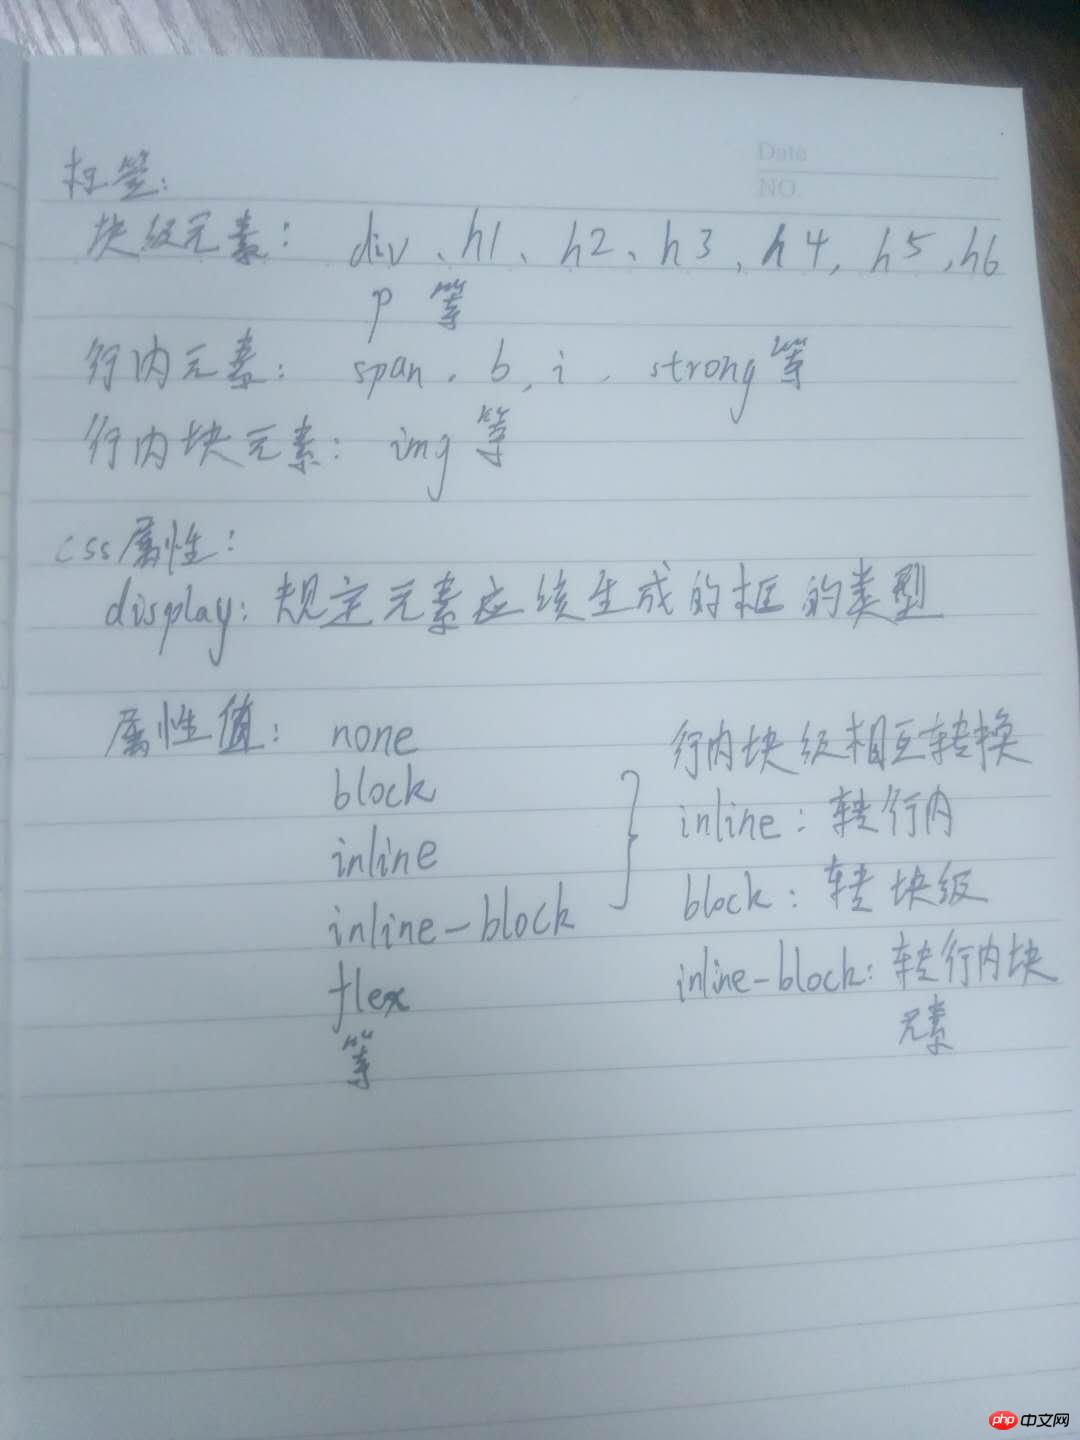 Date
NO.
标签:
块级元素: div、h1、h2、h3、h4,h5,h6
p 等
行内元素: span、b、i、strong等
行内块元素: img等
css属性:
display: 规定元素应该生成的框的类型
属性值: none
block
inline
inline-block
flex
等
行内块级相互转换
inline: 转行内
block: 转块级
inline-block: 转行内块
元素
php 中文网